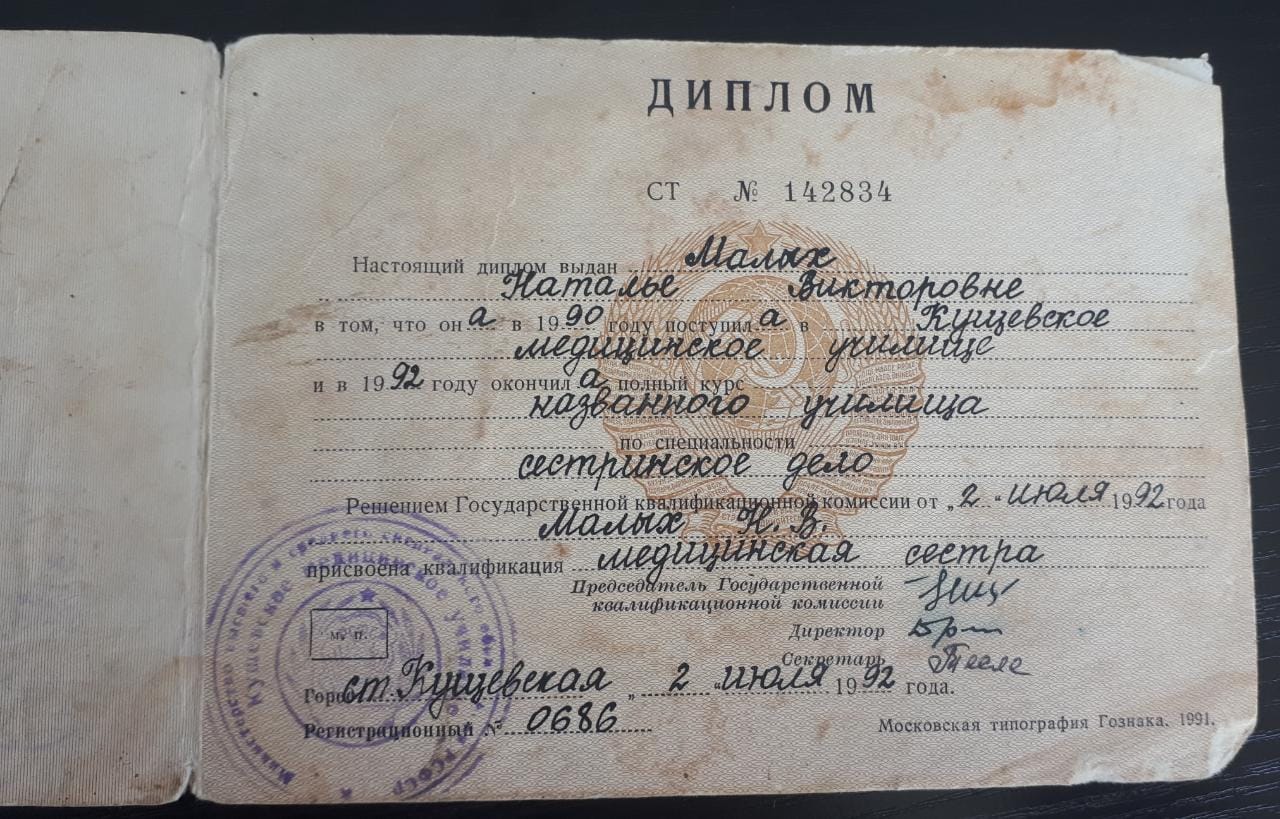 ДИПЛОМ
СТ № 142834
Настоящий диплом выдан Малых
Наталье Викторовне
в том, что она в 1990 году поступила в Кущевское
медицинское училище
и в 1992 году окончила полный курс
названного училища
по специальности
сестринское дело
Решением Государственной квалификационной комиссии от „2“ июля 1992 года
Малых Н. В.
присвоена квалификация медицинская сестра
Председатель Государственной
квалификационной комиссии
Директор
Секретарь
м. п.
Город ст. Кущевская „2“ июля 1992 года.
Регистрационный № 0686
Московская типография Гознака. 1991.
Кущевское медицинское училище
РСФСР